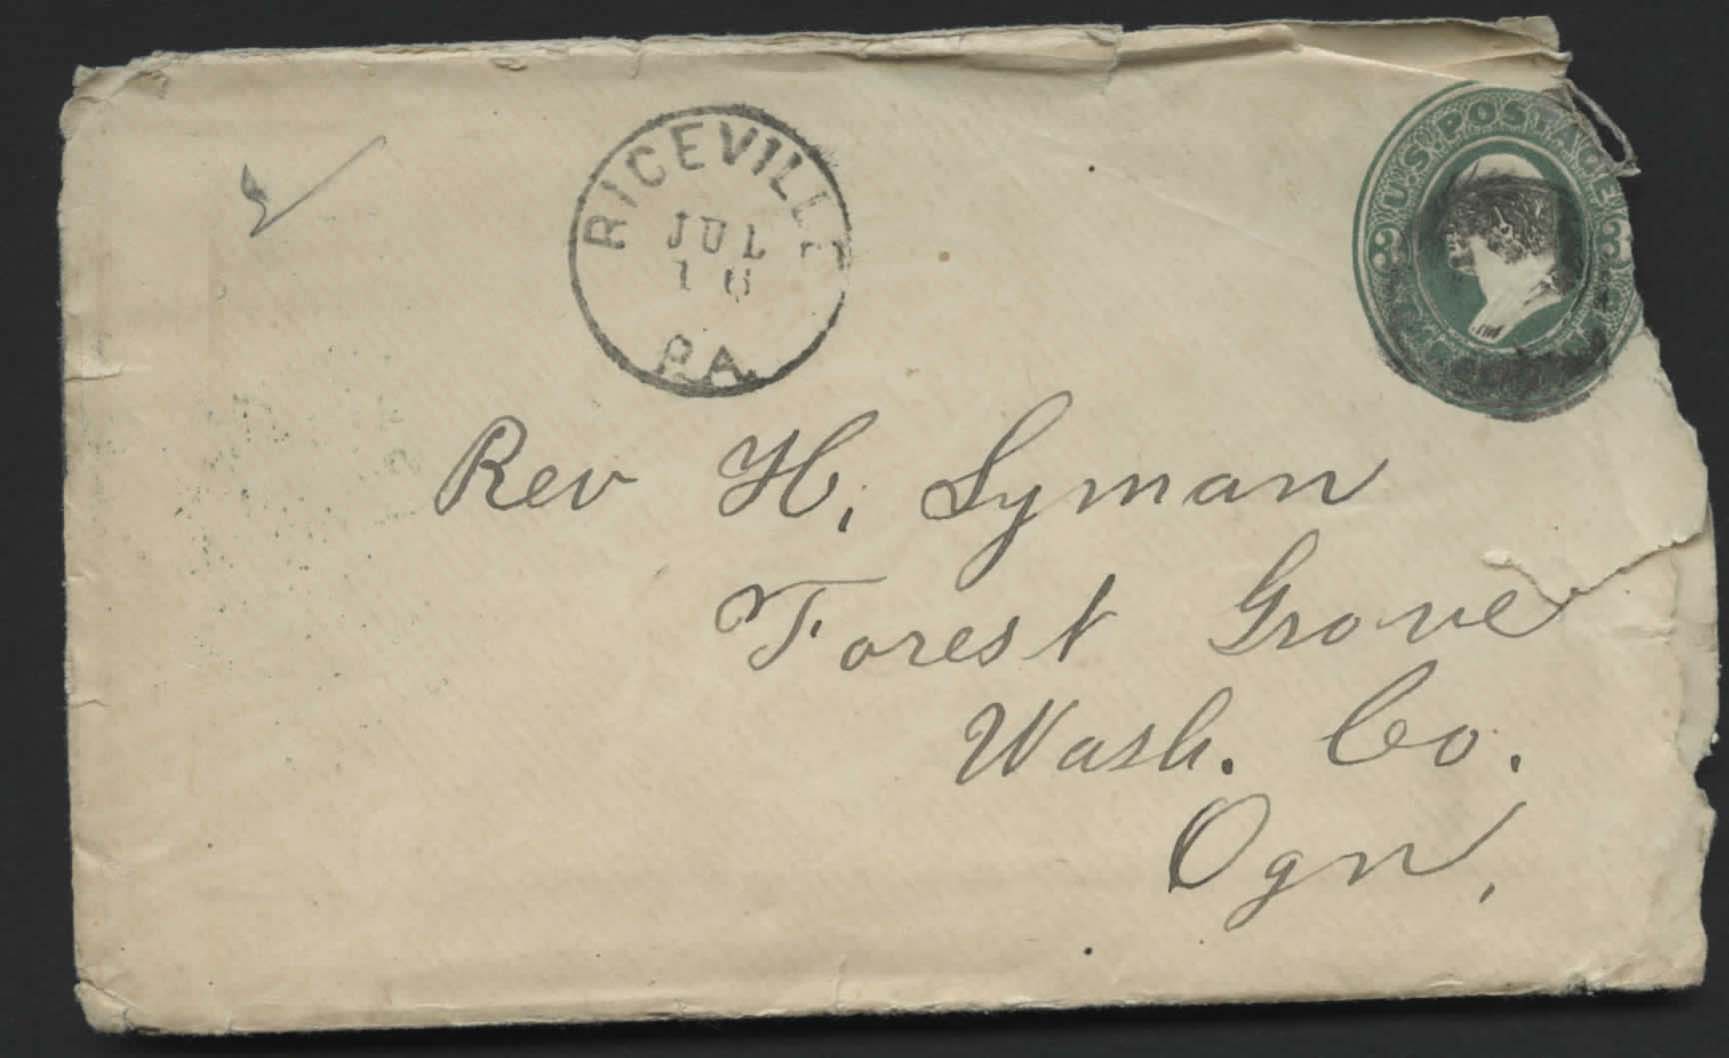 RICEVILLE
JUL
PA.
U.S. POSTAGE
3 3
Rev H. Lyman
Forest Grove
Wash. Co.
Ogn.